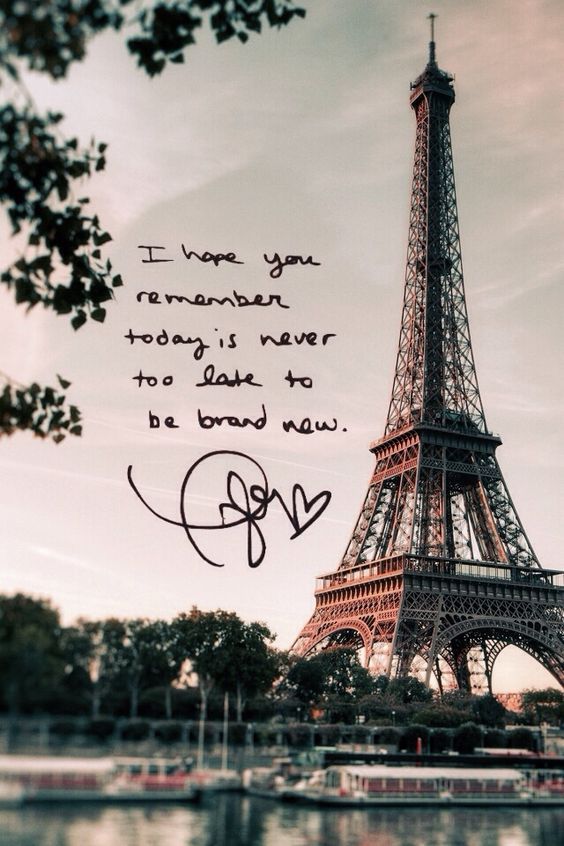 I hope you
remember
today is never
too late to
be brand new.